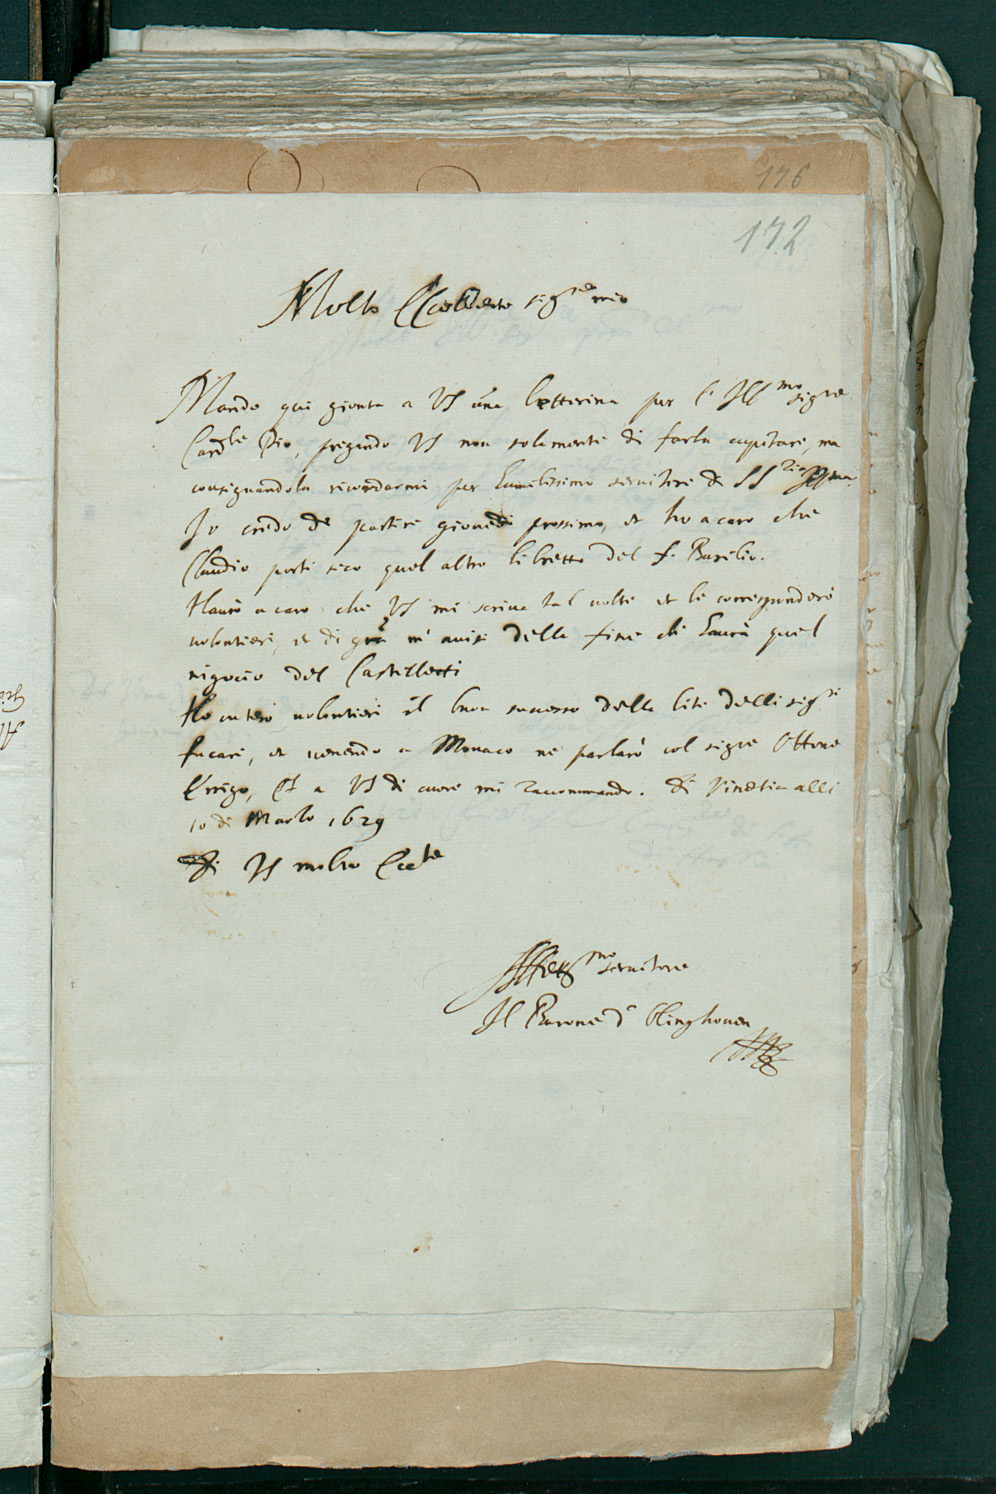 176
172
Molto Eccellente sigre mio
Mando qui gionta a VS una letterina per l' Illmo sigre
Cardle Pio, pregando VS non solamente di farla capitare, ma
consignandola ricordarmi per humilissimo servitore di SS
Io credo de partire giovedi prossimo, et ho a caro che
Claudio porti seco quel altro libretto del f. Basilio.
Haurò a caro che VS mi scriva tal volte et le corresponderò
volontieri, et di gra m' avisi della fine che haurà quel
negocio del Castilletti
Ho inteso volontieri il buon successo della lite delli sigri
fucari, et venendo a Monaco ne parlarò col sigre Ottone
Errigo, Et a VS di cuore mi raccommando. Di Vinetia alli
10 di Marzo 1629
Di VS molto Ecclte
Affettmo servitore
Il Barone d'